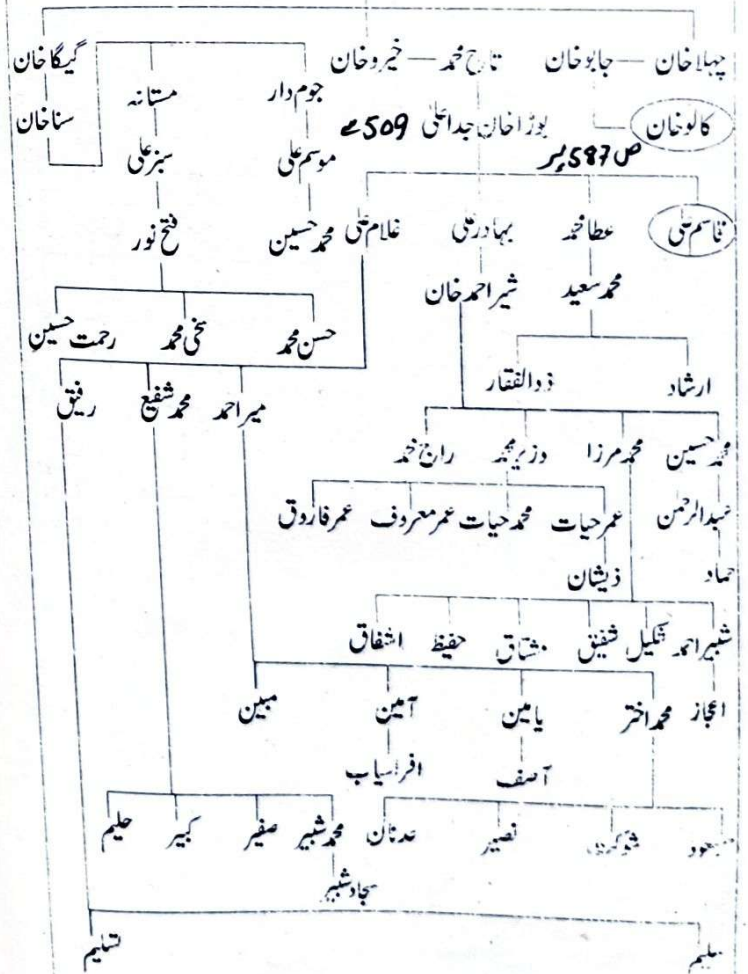 چہلاخان — جابوخان تاج محمد — خیروخان گیگاخان
جوم دار مستانہ
کالوخان بوڑاخان جداعلیٰ 509 سے سناخان
ص 587 پر موسم علی سبزعلی
قاسم علی عطامحمد بہادرعلی غلام علی محمدحسین فتح نور
محمدسعید شیراحمدخان
حسن محمد سخی محمد رحمت حسین
ارشاد ذوالفقار میراحمد محمدشفیع رفیق
محمدحسین محمدمرزا وزیرمحمد راج محمد
عبدالرحمن عمرحیات محمدحیات عمرمعروف عمرفاروق
حماد ذیشان
شبیراحمد شکیل شفیق مشتاق حفیظ اشفاق
اعجاز محمداختر یامین آمین مبین
آصف افراسیاب
نصیر عدنان محمدشبیر صفیر کبیر حلیم
سجادشبیر
تسلیم